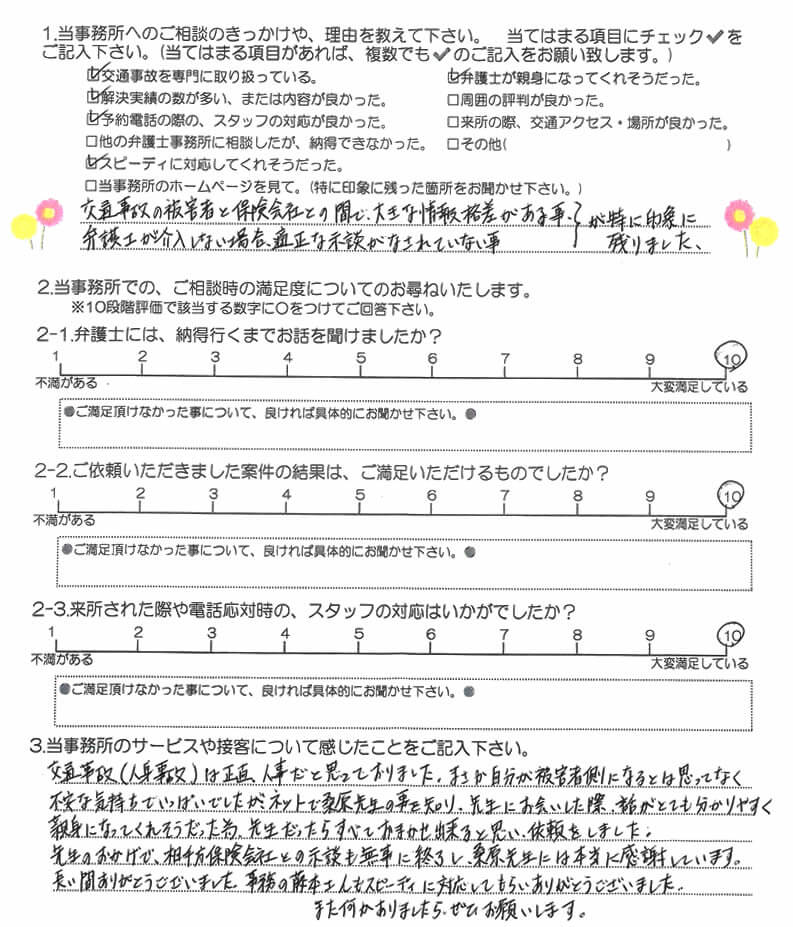 1.当事務所へのご相談のきっかけや、理由を教えて下さい。 当てはまる項目にチェック✔を
ご記入下さい。(当てはまる項目があれば、複数でも✔のご記入をお願い致します。)
☑交通事故を専門に取り扱っている。 ☑弁護士が親身になってくれそうだった。
☑解決実績の数が多い、または内容が良かった。 □周囲の評判が良かった。
☑予約電話の際の、スタッフの対応が良かった。 □来所の際、交通アクセス・場所が良かった。
□他の弁護士事務所に相談したが、納得できなかった。 □その他( )
☑スピーディに対応してくれそうだった。
□当事務所のホームページを見て。(特に印象に残った箇所をお聞かせ下さい。)
交通事故の被害者と保険会社との間で、大きな情報格差がある事、 が特に印象に
弁護士が介入しない場合、適正な示談がなされていない事 残りました、
2.当事務所での、ご相談時の満足度についてのお尋ねいたします。
※10段階評価で該当する数字に○をつけてご回答下さい。
2-1.弁護士には、納得行くまでお話を聞けましたか?
1 2 3 4 5 6 7 8 9 10
不満がある 大変満足している
●ご満足頂けなかった事について、良ければ具体的にお聞かせ下さい。●
2-2.ご依頼いただきました案件の結果は、ご満足いただけるものでしたか?
1 2 3 4 5 6 7 8 9 10
不満がある 大変満足している
●ご満足頂けなかった事について、良ければ具体的にお聞かせ下さい。●
2-3.来所された際や電話応対時の、スタッフの対応はいかがでしたか?
1 2 3 4 5 6 7 8 9 10
不満がある 大変満足している
●ご満足頂けなかった事について、良ければ具体的にお聞かせ下さい。●
3.当事務所のサービスや接客について感じたことをご記入下さい。
交通事故(人身事故)は正直、人事だと思っておりました。まさか自分が被害者側になるとは思ってなく
不安な気持ちでいっぱいでしたがネットで桑原先生の事を知り、先生にお会いした際、話がとても分かりやすく
親身になってくれそうだった為、先生だったらすべておまかせ出来ると思い、依頼をしました。
先生のおかげで、相手方保険会社との示談も無事に終了し、桑原先生には本当に感謝しています。
長い間ありがとうございました。事務の藤本さんもスピーディに対応してもらいありがとうございました。
また何かありましたら、ぜひお願いします。